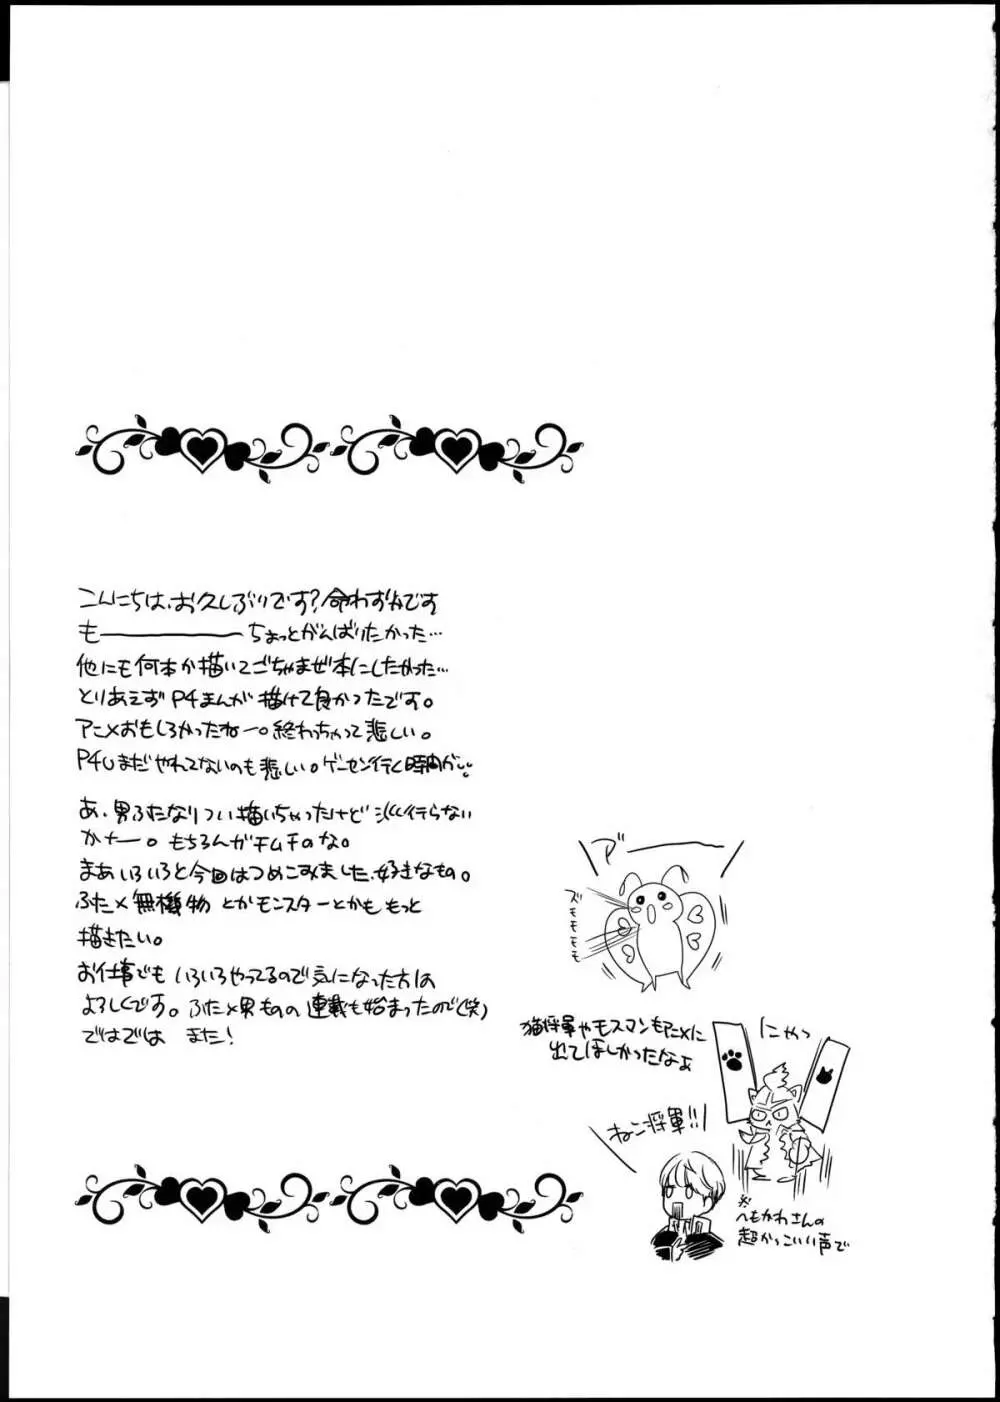 こんにちは、お久しぶりです?命わずみです
もーーーーーちょっとがんばりたかった…
他にも何本か描いてごちゃまぜ本にしたかった…
とりあえずP4まんが描けて良かったです。
アニメおもしろかったねー。終わっちゃって悲しい。
P4Uまだやれてないのも悲しい。ゲーセン行く時間が…
あ、男ふたなりつい描いちゃったけど 行らない
かなー。もちろんガチムチのな。
まあいろいろと今回はつめこみました、好きなもの。
ふた×無機物とかモンスターとかももっと
描きたい。
お仕事でもいろいろやってるので気になった方は
よろしくです。ふた×男ものの連載も始まったので(笑)
ではでは また!
ア゛ーーー
ズモモモモ
猫将軍やモスマンもアニメに
出てほしかったなぁ
にゃっ
ねこ将軍!!
※
へもかわさんの
超かっこいい声で